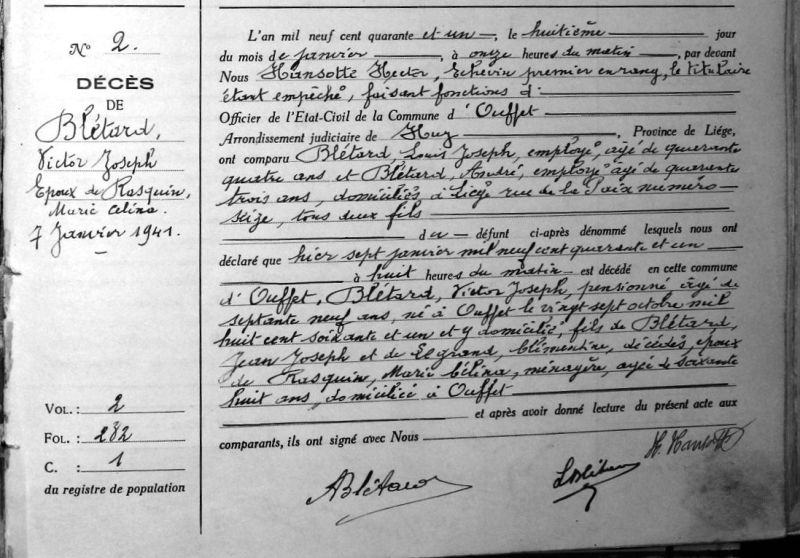 N° 2.
DÉCÈS
DE
Blétard,
Victor Joseph
Epoux de Rasquin,
Marie Célina.
7 Janvier 1941.
VOL.: 2
FOL.: 282
C. : 1
du registre de population
L'an mil neuf cent quarante et un, le huitième jour
du mois de janvier, à onze heures du matin, par devant
Nous Hansotte Hector, Echevin premier en rang, le titulaire
étant empêché, faisant fonctions d'
Officier de l'Etat-Civil de la Commune d' Ouffet
Arrondissement judiciaire de Huy, Province de Liége,
ont comparu Blétard Louis Joseph, employé, âgé de quarante
quatre ans et Blétard, André, employé âgé de quarante
trois ans, domiciliés, à Liège rue de la Paix numéro
seize, tous deux fils
du défunt ci-après dénommé lesquels nous ont
déclaré que hier sept janvier mil neuf cent quarante et un
à huit heures du matin est décédé en cette commune
d' Ouffet, Blétard, Victor Joseph, pensionné âgé de
septante neuf ans, né à Ouffet le vingt sept octobre mil
huit cent soixante et un et y domicilié, fils de Blétard,
Jean Joseph et de Legrand, Clémentine, décédés, époux
de Rasquin, Marie Célina, ménagère, âgée de soixante
huit ans, domiciliée à Ouffet
et après avoir donné lecture du présent acte aux
comparants, ils ont signé avec Nous
H. Hansotte
ABlétard